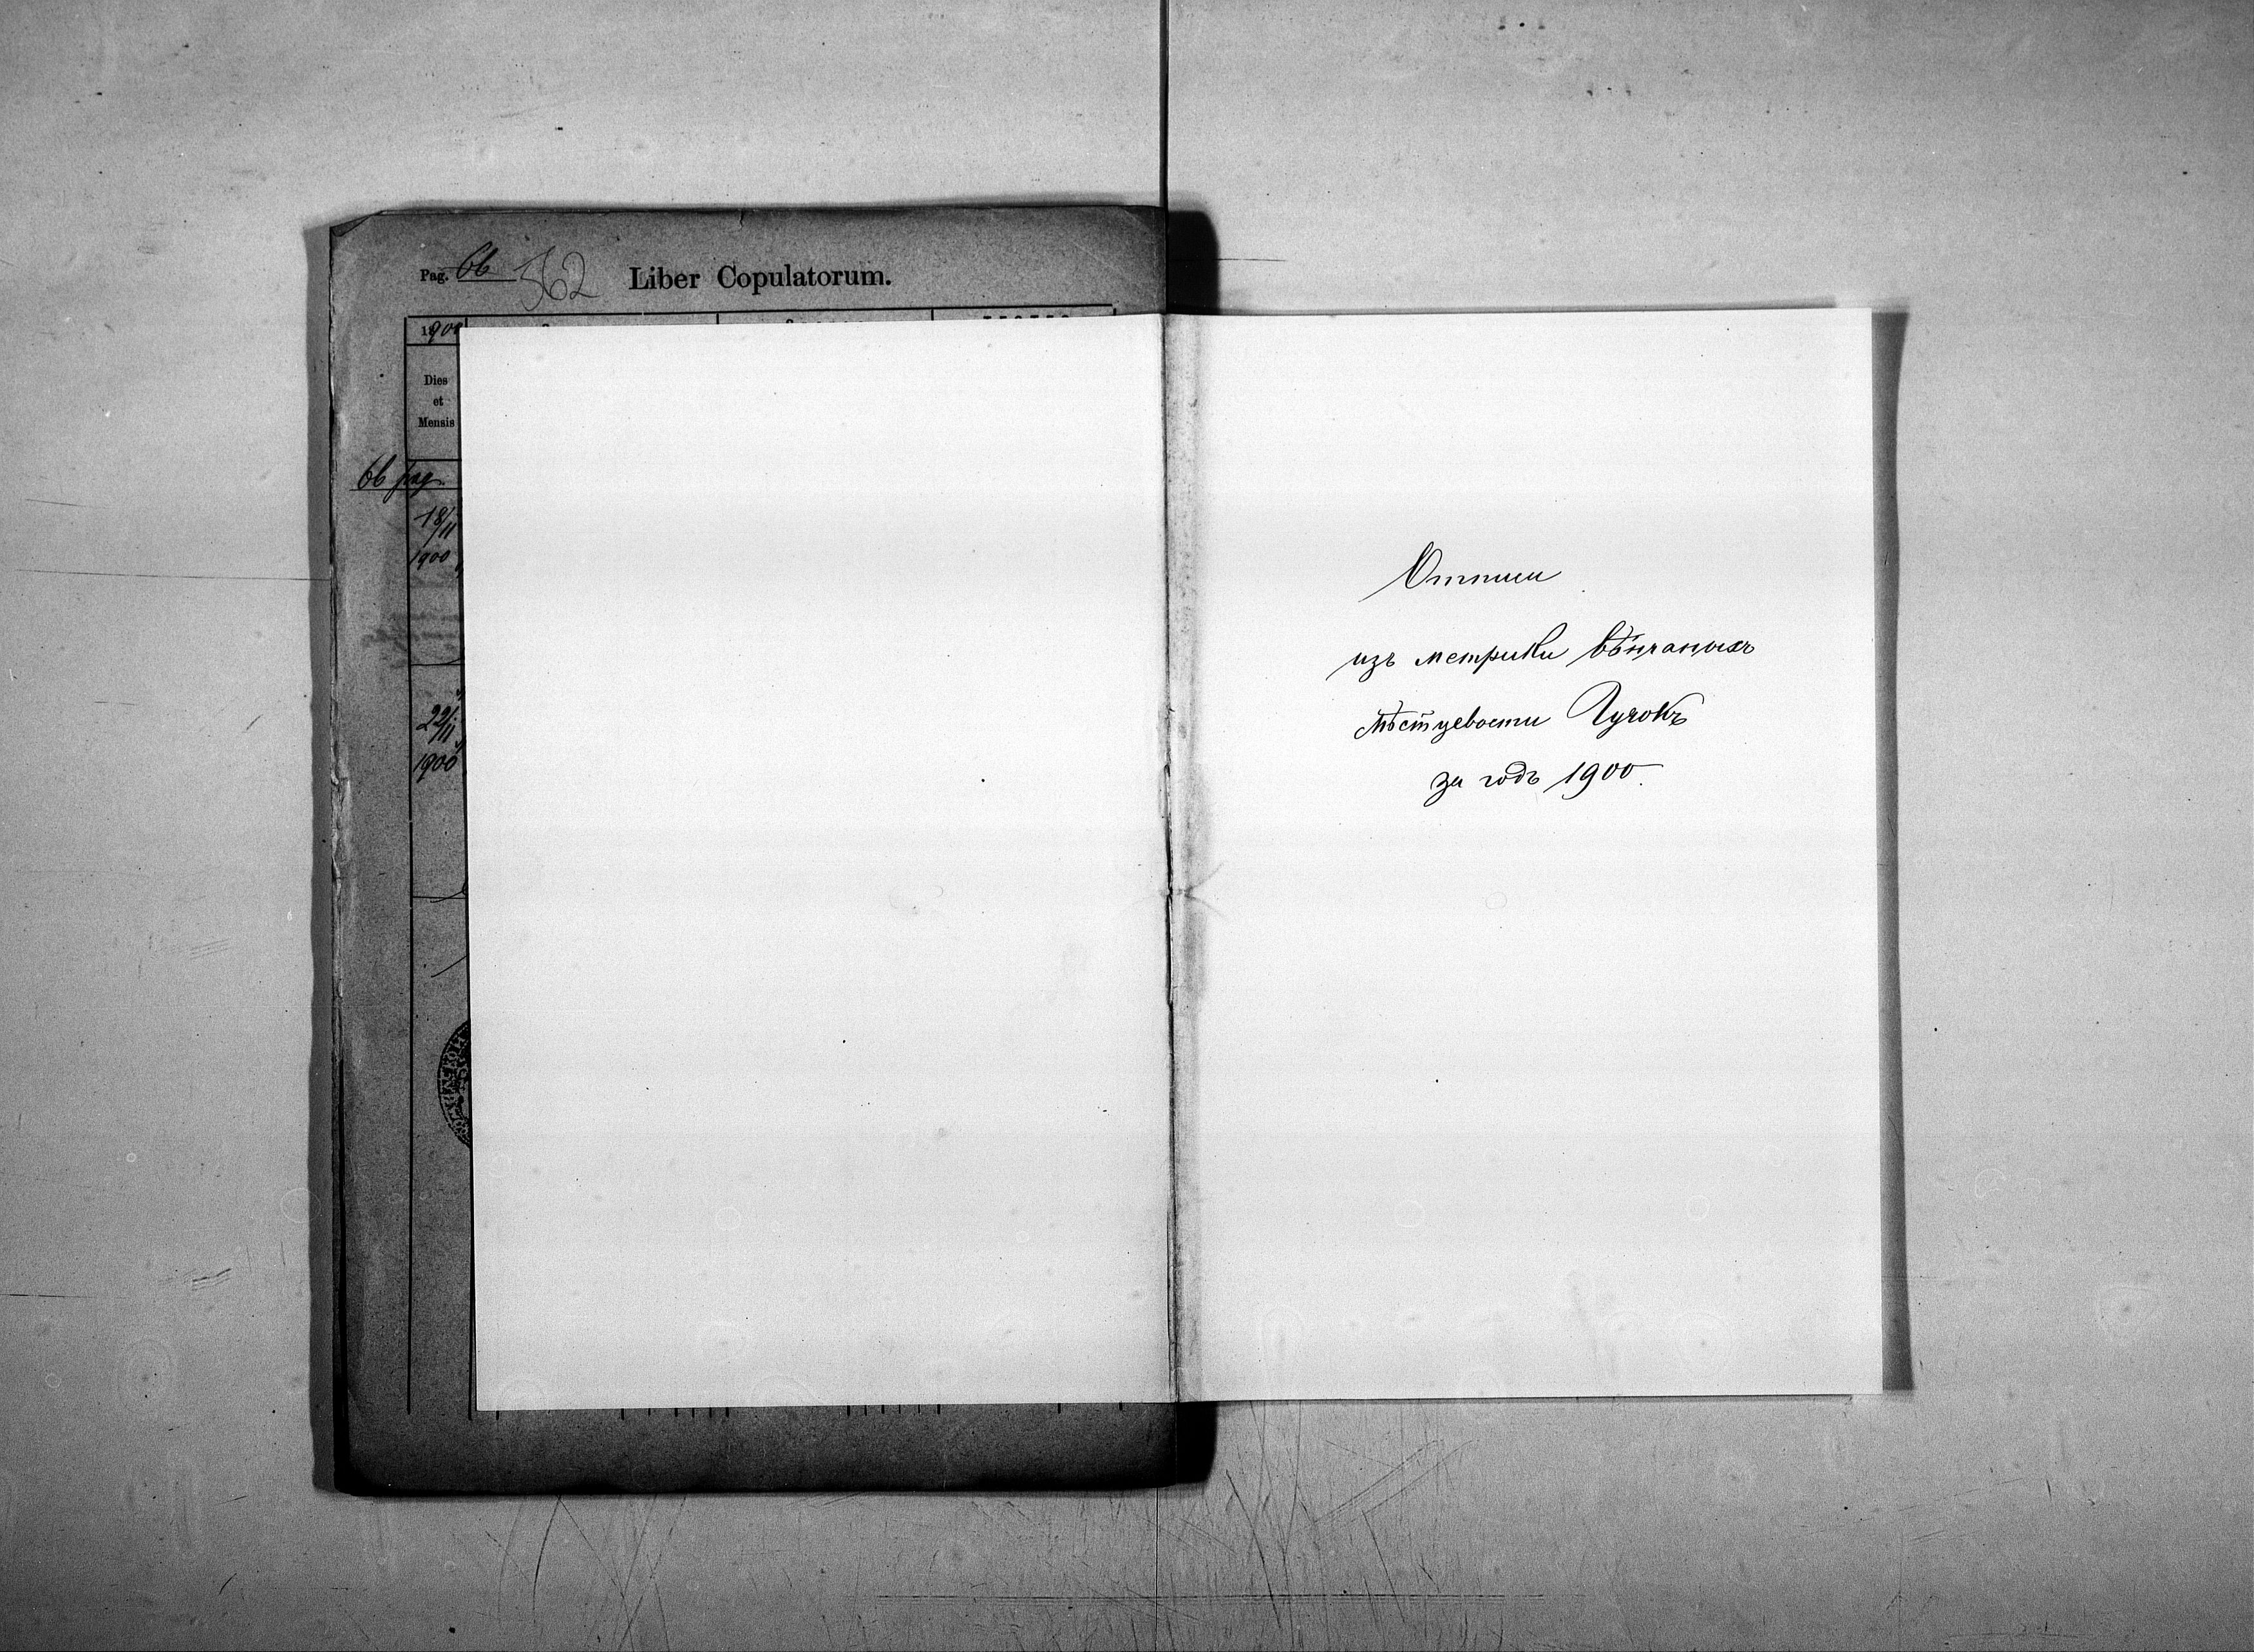 Pag. 66 562 Liber Copulatorum.
1900
Dies
et
Mensis
66 pag.
18/II
1900
22/II
1900
Отписи
изъ метрики вѣнчаныхъ
мѣстцевости
за годъ 1900.